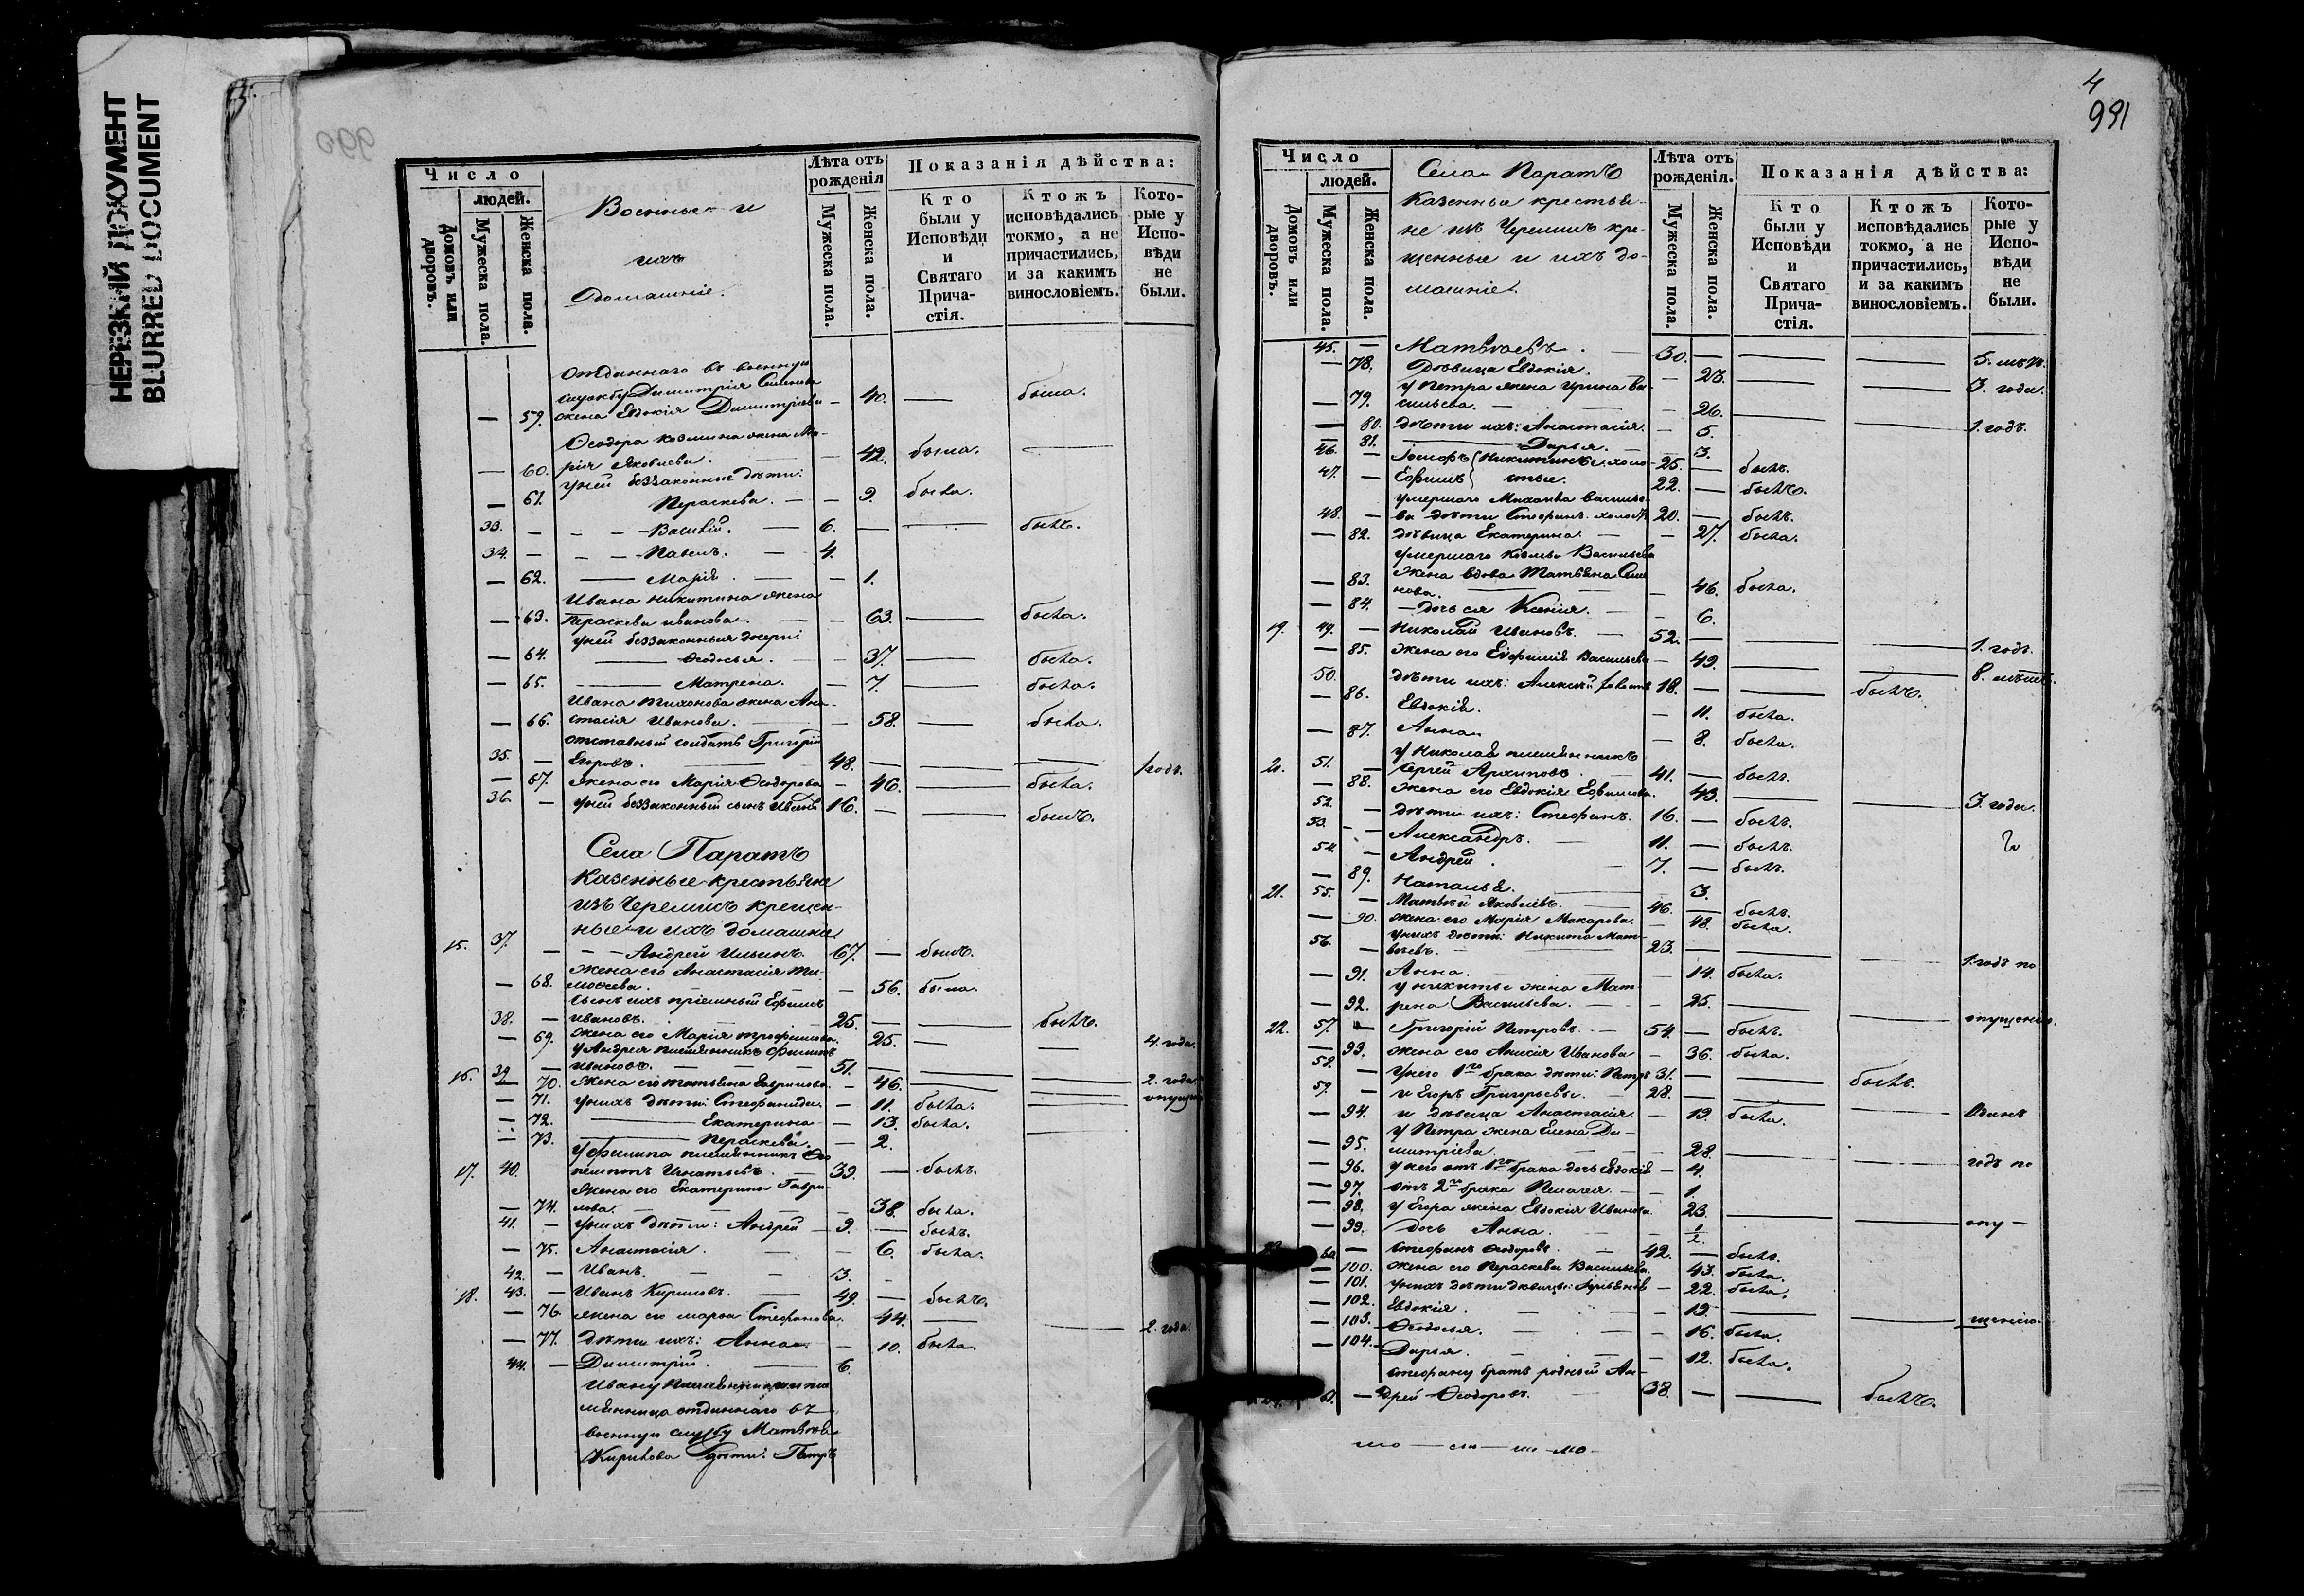 НЕРЕЗКИЙ ДОКУМЕНТ
BLURRED DOCUMENT
990
Число
людей.
Домовъ или дворовъ.
Мужеска пола.
Женска пола.
Военные и
ихъ
домашніе.
Лѣта отъ рожденія
Мужеска пола.
Женска пола.
Показанія дѣйства:
Кто были у Исповѣди и Святаго Прича-стія.
Ктожъ исповѣдались токмо, а не причастились, и за какимъ винословіемъ.
Кото-рые у Испо-вѣди не были.
отданнаго въ военную
службу Димитрія Семенова
— 59. жена Евдокія Димитріева — 40. — была.
Ѳеодора Козмина жена Ма-
— 60. рія Яковлева. — 42. была. —
у ней беззаконные дѣти:
— 61. Пераскева. — — 9. была.
33. — — — Василій. — 6. — — былъ.
34. — — — Павелъ. — 4.
— 62. — Марія. — — 1.
Ивана Никитина жена
— 63. Пераскева Иванова. — — 63. — была.
у ней беззаконныя дочери:
— 64. — Ѳеодосья. — — 37. — была.
— 65. — Матрена. — 7. — была.
Ивана Тихонова жена Ана-
— 66. стасія Иванова. — — 58. — была.
отставный солдатъ Григорій
35. — Егоровъ. — 48. — — — 1 годъ.
— 67. жена его Марія Ѳеодорова — 46. — была.
36 — у ней беззаконный сынъ Иванъ 16. — — былъ.
Села Паратъ
казенные крестьяне
изъ Черемисъ крещен-
ные и ихъ домашніе
15. 37. — — — Андрей Ильинъ. 67. — былъ.
жена его Анастасія Ти-
— 68. моѳеева. — — — 56. была.
сынъ ихъ пріемный Ефимъ
38. — Ивановъ. — — 25. — — былъ.
— 69. жена его Марія Трофимова. 25. — — 4. года.
у Андрея племянникъ Филиппъ
16. 39. — Ивановъ. — — — 51. — — —
— 70. жена его Татьяна Гаврилова. — 46. — — 2. года
— 71. у нихъ дѣти: Стефанида. — 11. была. —
— 72. — Екатерина — 13. была.
— 73. — Пераскева. — 2. —
у Филиппа племянникъ
17. 40. Игнатьевъ. — 39. — былъ.
жена его Екатерина Гаври-
— 74. лова. — — — — 38. была.
41. — у нихъ дѣти: Андрей — 9. — былъ.
— 75. Анастасія. — — 6. была.
42. — Иванъ. — — 3. —
18. 43. — Иванъ Кириловъ. — 49. — былъ.
— 76 жена его Марѳа Стефанова. 44. — — 2. года.
— 77. дѣти ихъ: Анна. — 10. была.
44. — Димитрій. — 6.
Ивану
отданнаго въ
военную службу Матвѣя
Кирилова дѣти: Петръ
4
991
Число
людей.
Домовъ или дворовъ.
Мужеска пола.
Женска пола.
Села Паратъ
казенные крестья-
не изъ Черемисъ кре-
щенные и ихъ до-
машніе.
Лѣта отъ рожденія.
Мужеска пола.
Женска пола.
Показанія дѣйства:
Кто были у Исповѣди и Святаго Прича-стія.
Ктожъ исповѣдались токмо, а не причастились, и за какимъ винословіемъ.
Кото-рые у Испо-вѣди не были.
45. — Матвѣевъ. — 30. — — — 5. лѣтъ.
— 78. Дѣвица Евдокія. — 23. — — 3. года.
у Петра жена Ирина Ва-
— 79. сильева. — — — 26. — —
— 80. дѣти ихъ: Анастасія. — 5. 1. годъ.
— 81. — Дарья. — 3.
46. — 25. — былъ.
47. — Ефимъ 22. — былъ.
умершаго Михаила Василье-
48. — ва дѣти Стефанъ холостъ 20. — былъ.
— 82. дѣвица Екатерина. — — 27. была.
умершаго Козмы Васильева
— 83. жена вдова Татьяна Семе-
нова. — — — 46. была.
— 84. — дочь ея Ксенія. — 6.
19. 49. — Николай Ивановъ. — 52. — — — 1. годъ.
— 85. жена его Евфимія Васильева — 49. — — 8. лѣтъ.
50. дѣти ихъ: Алексѣй холостъ 18. — — былъ.
— 86. Евдокія. — 11. была.
— 87. Анна. — 8. была.
у Николая племянникъ
20. 51. — Сергѣй Архиповъ. 41. — былъ.
— 88. жена его Евдокія Ефимова. 43. — — 3. года.
52. — дѣти ихъ: Стефанъ. 16. — былъ.
53. — Александръ. — 11. — былъ.
54. — Андрей. — 7. — былъ.
— 89. Наталья. — — 3.
21. 55. — Матвѣй Яковлевъ. — 46. — былъ.
— 90. жена его Марія Макарова. — 48. была.
у нихъ дѣти: Никита Мат-
56. — вѣевъ. — 23. — — — 1. годъ по
— 91. Анна. — — 14. была.
у Никиты жена Мат-
— 92. рена Васильева. — — 25. — опущенію.
22. 57. — Григорій Петровъ. — 54. — былъ.
— 93. жена его Анисія Иванова — 36. была.
58. — у него 1го брака дѣти: Петръ 31. — — былъ.
59. — и Егоръ Григорьевы. — 28. —
— 94. и дѣвица Анастасія. — 19. была. — Одинъ
у Петра жена Елена Ди-
— 95. митріева. — — 28. — — годъ по
— 96. у него отъ 1го брака дочь Евдокія — 4.
— 97. отъ 2го брака Пелагея. — — 1.
— 98. у Егора жена Евдокія Иванова. 23. — — опу-
— 99. дочь Анна. — — 1/2.
60. — Стефанъ Ѳеодоровъ. — 42. — былъ.
— 100. жена его Пераскева Васильева. 43. была.
— 101. у нихъ дѣти дѣвицы: — 22. была.
— 102. Евдокія. — — 19. — — щенію.
— 103. Ѳеодосья. — — 16. была.
— 104. Дарья. — — 12. была.
Стефану братъ родный Ан-
61. — дрей Ѳеодоровъ. — 38. — — былъ.